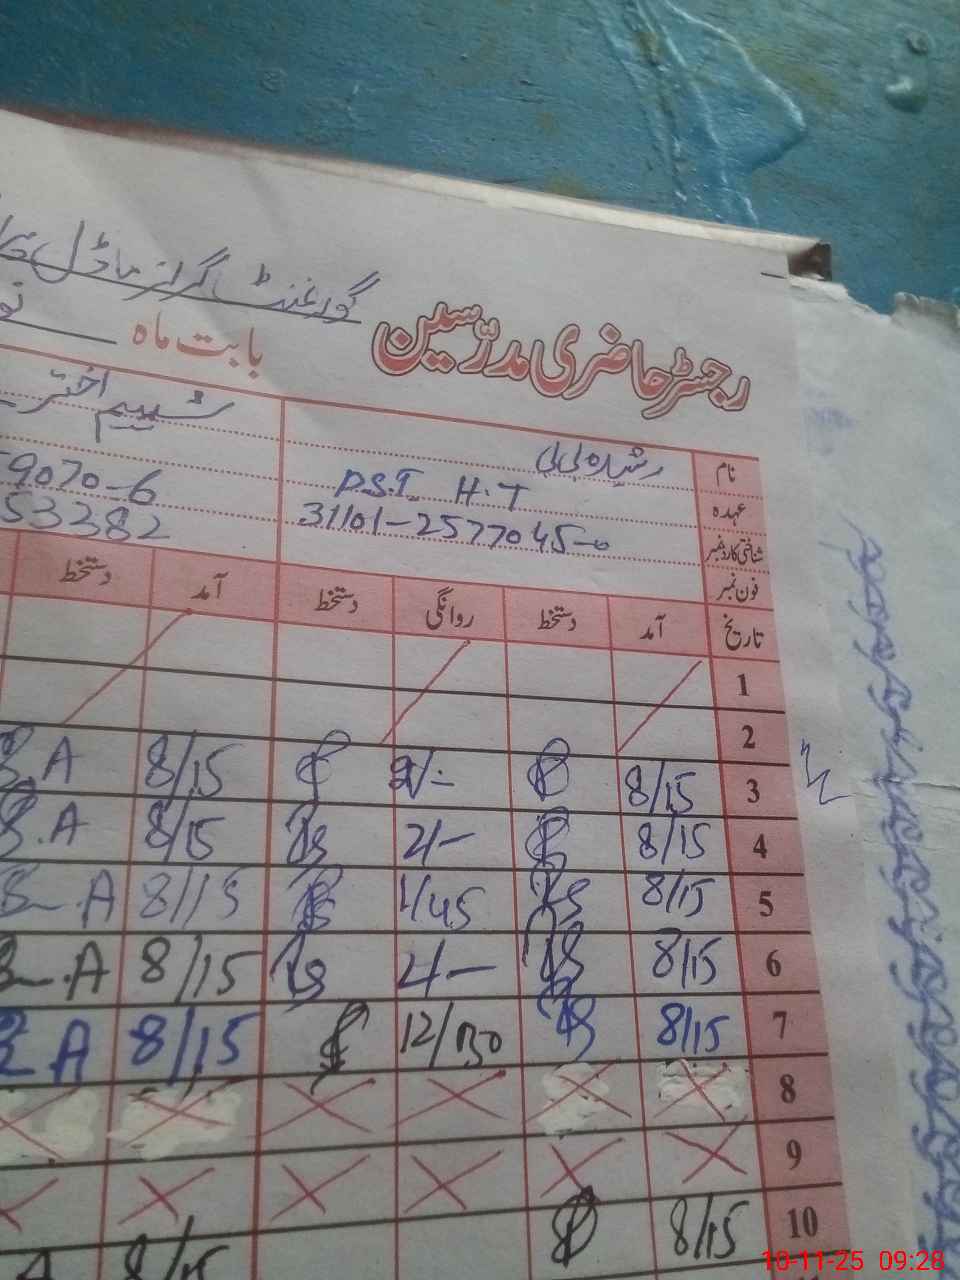 گورنمنٹ گرلز ماڈل
رجسٹر حاضری مدرّسین
بابت ماہ
نام رشیدہ بی بی شمیم اختر
عہدہ P.S.T H.T
شناختی کارڈ نمبر 31101-2577045-0 9070-6
فون نمبر 53382
تاریخ آمد دستخط روانگی دستخط آمد دستخط
1
2
3 8/15 2/- 8/15 A
4 8/15 2/- 8/15 A
5 8/15 1/45 8/15 A
6 8/15 2/- 8/15 A
7 8/15 12/30 8/15 A
8
9
10 8/15 8/15 A
10-11-25 09:28